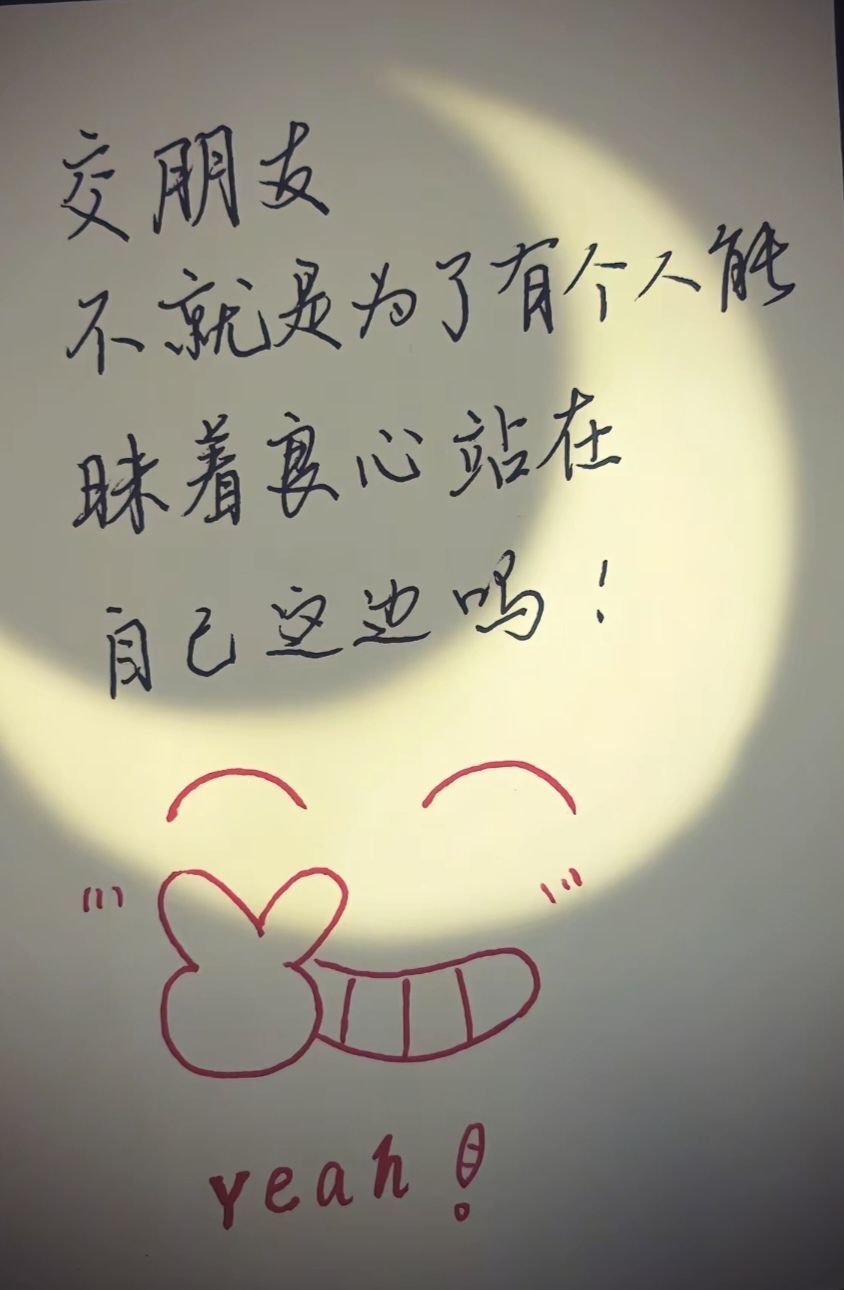 交朋友
不就是为了有个人能
昧着良心站在
自己这边吗！
yeah!